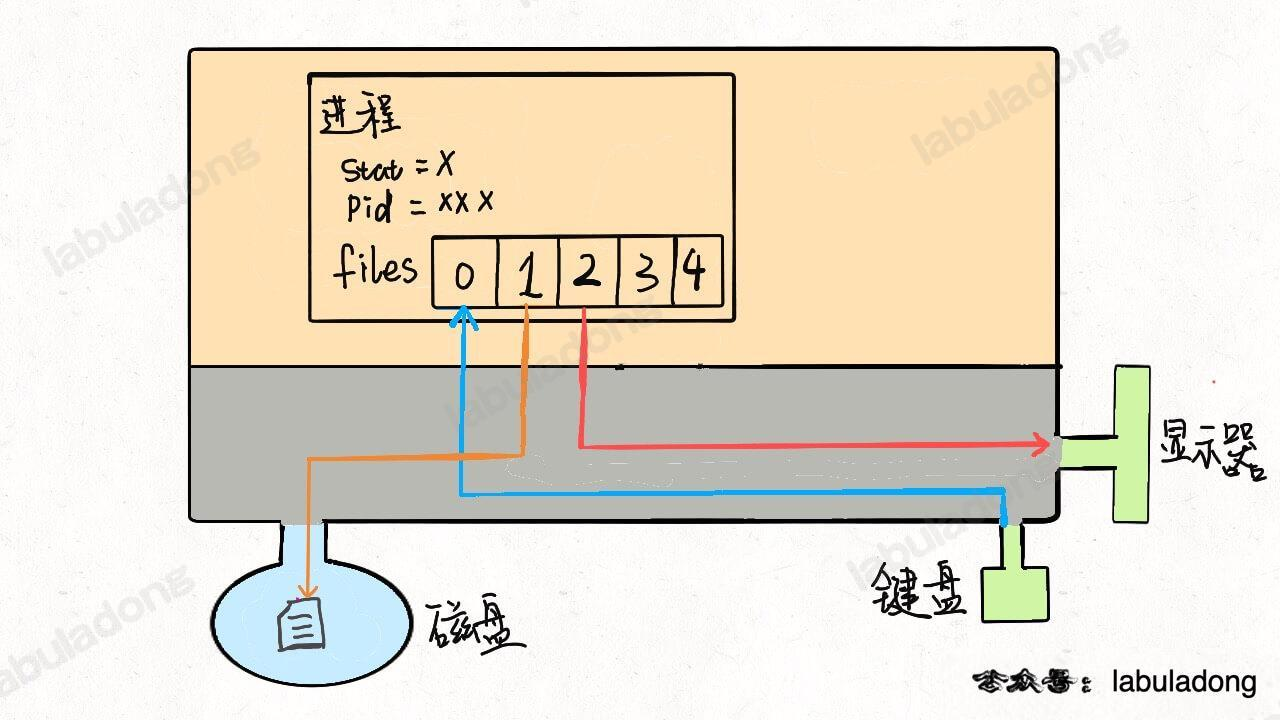 进程
Stat = X
Pid = XXX
files 0 1 2 3 4
显示器
键盘
磁盘
公众号：labuladong
labuladong
labuladong
labuladong
labuladong
labuladong